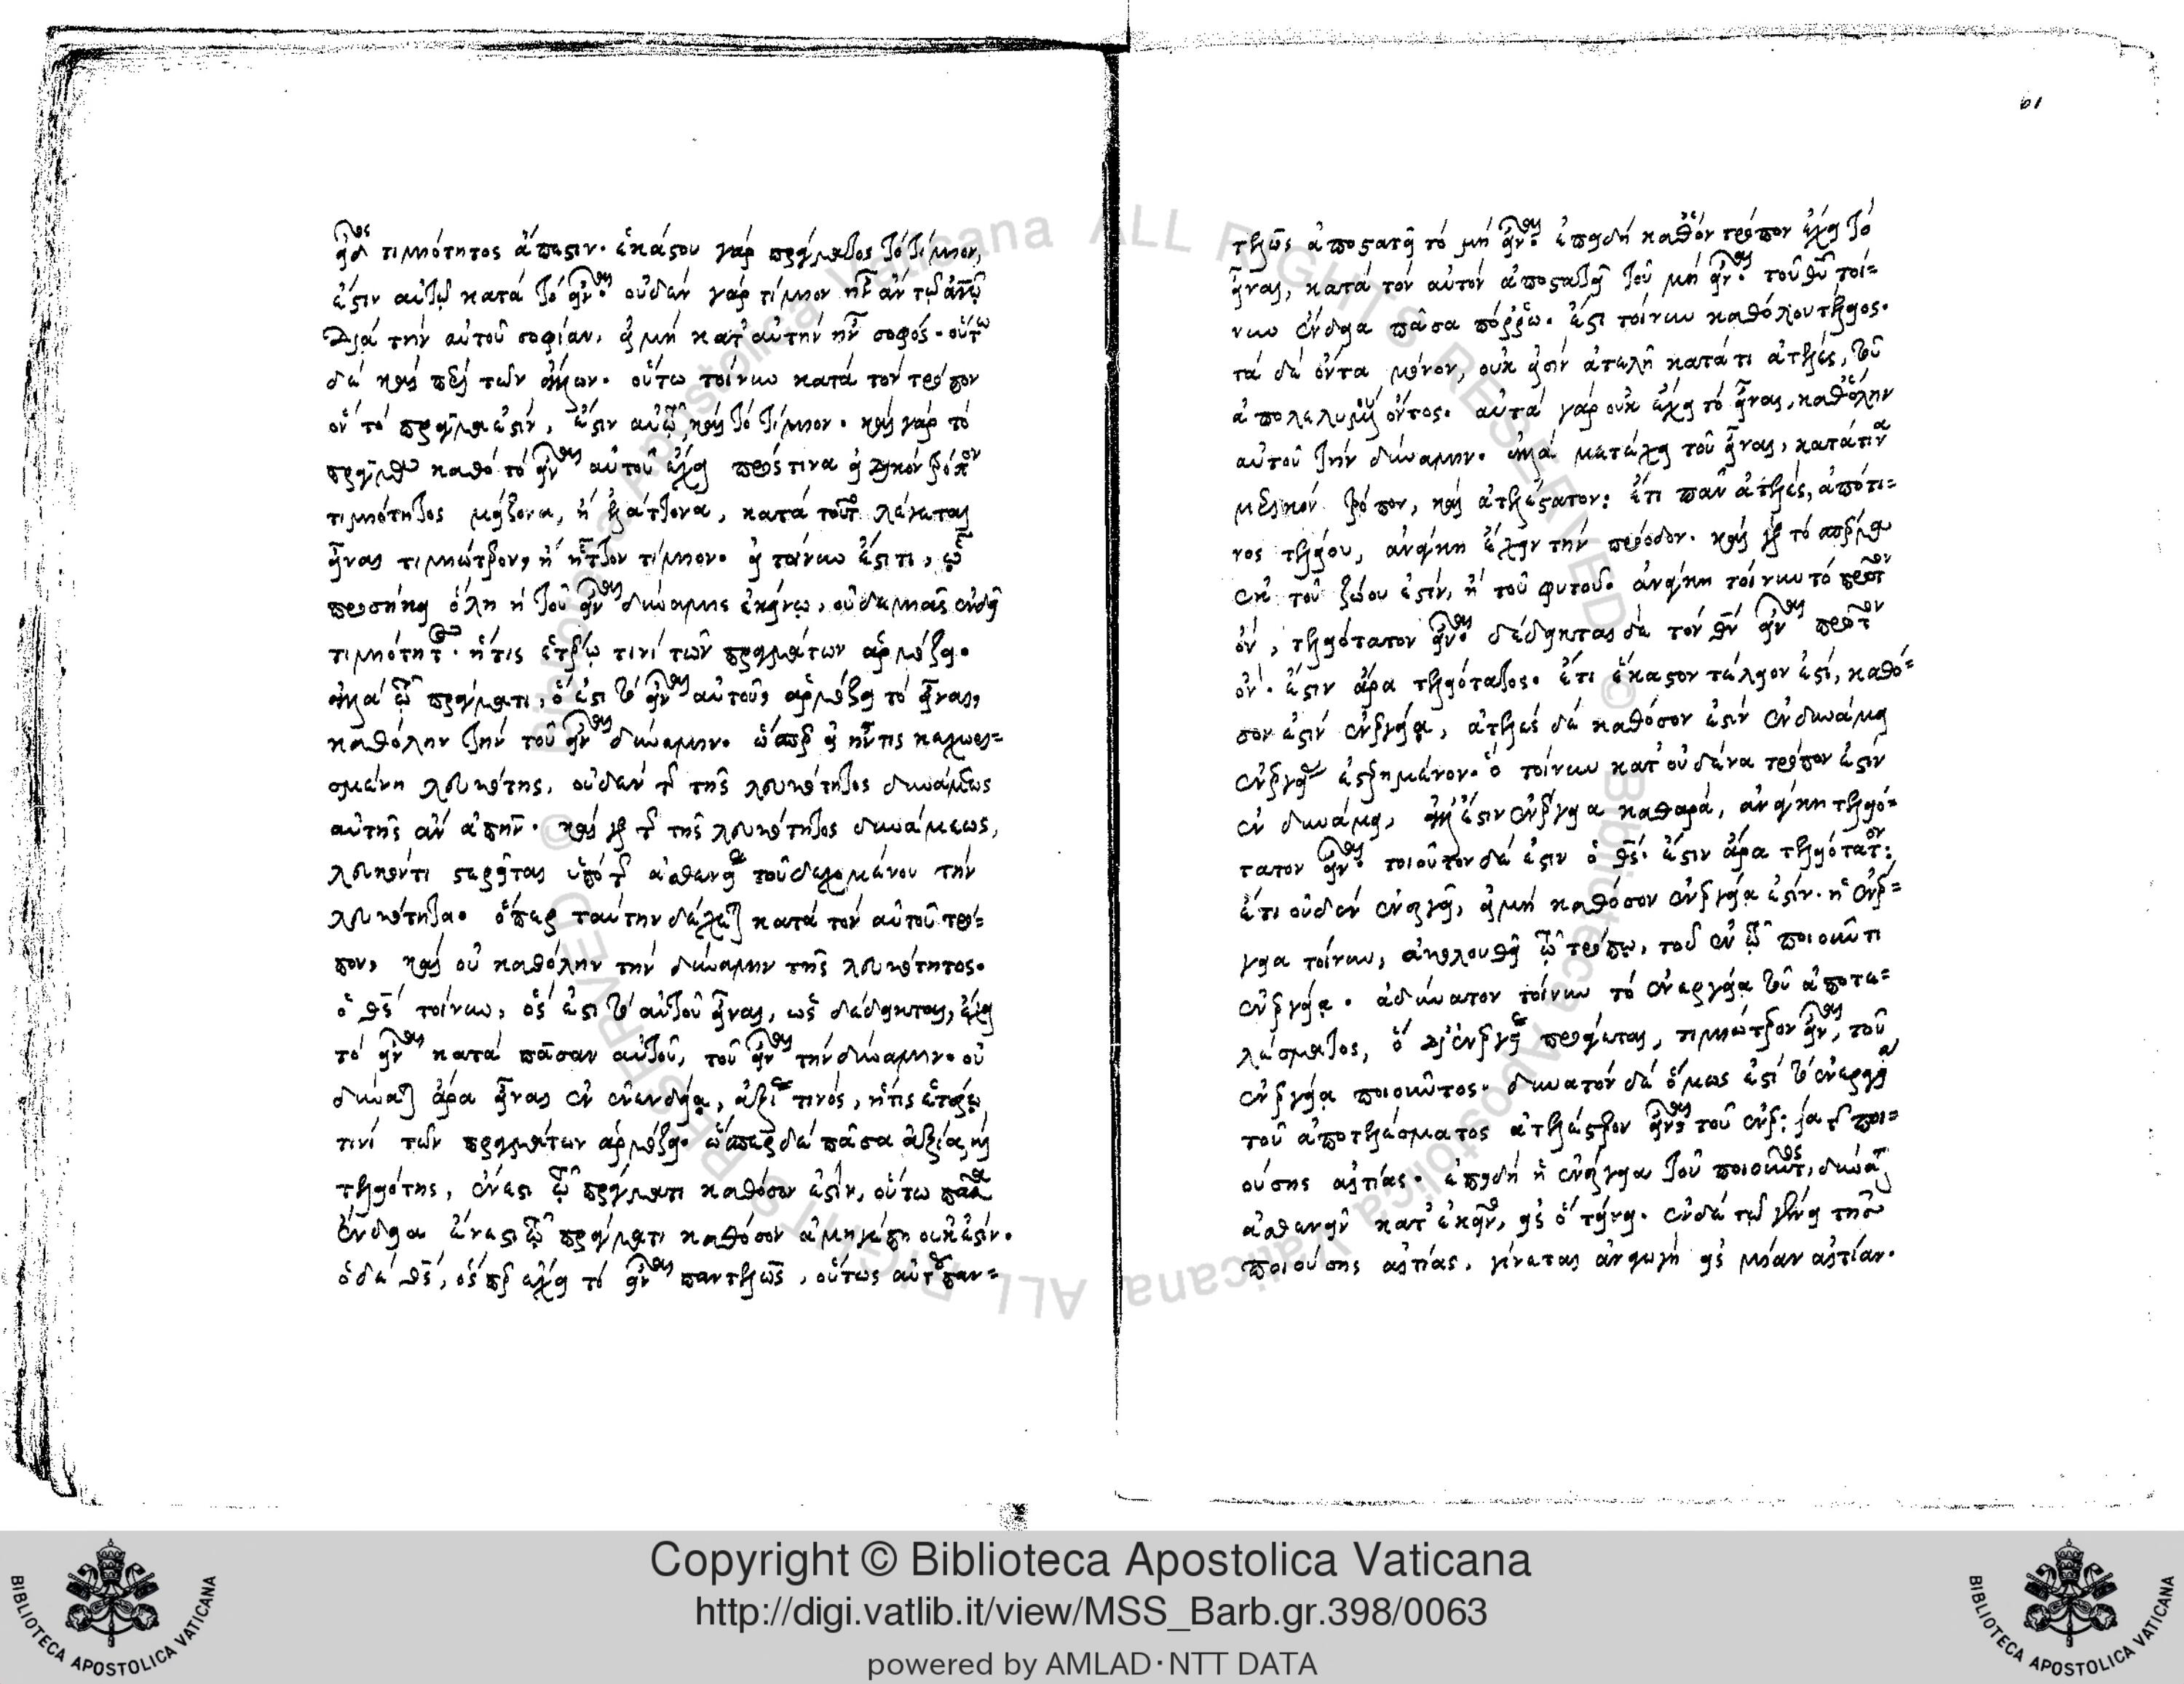 τιμιότητος ἄπεστιν. ἑκάστου γὰρ πράγματος τὸ τίμιον,
ἐστὶν αὐτῷ κατὰ τὸ εἶναι. οὐδὲν γὰρ τίμιον ἦν ἂν τῷ ἀνῳ
διὰ τὴν αὐτοῦ σοφίαν, εἰ μὴ κατ' αὐτὴν ἦν σοφός. οὕτω
δὲ καὶ περὶ τῶν ἄλλων. οὕτω τοίνυν κατὰ τὸν τρόπον
ὃν τὸ πρᾶγμα ἐστὶν, ἔστιν αὐτῷ καὶ τὸ τίμιον. καὶ γὰρ τὸ
πρᾶγμα καθὸ τὸ εἶναι αὐτοῦ ἕλκει πρός τινα εἰδικὸν τρόπον
τιμιότητος μείζονα, ἢ ἐλάττονα, κατὰ τοῦτο λέγεται
εἶναι τιμιώτερον, ἢ ἧττον τίμιον. εἰ τοίνυν ἔστι τι, ᾧ
προσήκει ὅλη ἡ τοῦ εἶναι δύναμις ἐκείνῳ, οὐδεμιᾶς ἐνδεῖ
τιμιότητος. ἥτις ἑτέρῳ τινὶ τῶν πραγμάτων ἁρμόζει.
ἀλλὰ τῷ πράγματι, ὅ ἐστι τὸ εἶναι αὐτοῦ, ἁρμόζει τὸ εἶναι,
καθόλην τὴν τοῦ εἶναι δύναμιν. ὥσπερ εἰ ἦν τις κεχωρι=
σμένη λευκότης, οὐδὲν τῆς λευκότητος δυνάμεως
αὐτῆς ἂν ἀπῆν. καὶ γὰρ τῆς λευκότητος δυνάμεως,
λευκόν τι στερεῖται ὑπὸ τῆς ἀσθενείας τοῦ δεχομένου τὴν
λευκότητα. ὅπερ ταύτην δέχεται κατὰ τὸν αὐτοῦ τρό=
πον, καὶ οὐ καθόλην τὴν δύναμιν τῆς λευκότητος.
ὁ θς τοίνυν, ὅς ἐστι τὸ αὐτοῦ εἶναι, ὡς δέδεικται, ἔχει
τὸ εἶναι κατὰ πᾶσαν αὐτοῦ, τοῦ εἶναι τὴν δύναμιν. οὐ
δύναται ἄρα εἶναι ἐν ἐνδείᾳ, ἀξίας τινός, ἥτις ἑτέρῳ
τινὶ τῶν πραγμάτων ἁρμόζει. ὥσπερ δὲ πᾶσα ἀξία, καὶ
τελειότης, ἔνεστι τῷ πράγματι καθόσον ἐστὶν, οὕτω πᾶσα
ἔνδεια ἔνεστι τῷ πράγματι καθόσον ἀμηγέπη οὐκ ἔστιν.
ὁ δὲ θς, ὥσπερ ἔχει τὸ εἶναι παντελῶς, οὕτως αὐτοῦ παν=
61
τελῶς ἀποστατεῖ τὸ μὴ εἶναι. ἐπειδὴ καθ' ὃν τρόπον ἔχει τὸ
εἶναι, κατὰ τὸν αὐτὸν ἀποστατεῖ τοῦ μὴ εἶναι. τοῦ θῦ τοί=
νυν ἔνδεια πᾶσα πόρρω. ἔστι τοίνυν καθόλου τέλειος.
τὰ δὲ ὄντα μόνον, οὐκ εἰσὶν ἀτελῆ κατά τι ἀτελὲς, τοῦ
ἀπολελυμένως ὄντος. αὐτὰ γὰρ οὐκ ἔχει τὸ εἶναι, καθ' ὅλην
αὐτοῦ τὴν δύναμιν. ἀλλὰ μετέχει τοῦ εἶναι, κατά τινα
μερικὸν τρόπον, καὶ ἀτελέστατον: ἔτι πᾶν ἀτελὲς, ἀπό τι=
νος τελείου, ἀνάγκη ἔχειν τὴν πρόοδον. καὶ γὰρ τὸ σπέρμα
ἐκ τοῦ ζώου ἐστὶν, ἢ τοῦ φυτοῦ. ἀνάγκη τοίνυν τὸ πρῶτον
ὂν, τελειότατον εἶναι. δέδεικται δὲ τὸν θν εἶναι πρῶτον
ὄν. ἔστιν ἄρα τελειότατος. ἔτι ἕκαστον τέλειον ἐστὶ, καθό=
σον ἐστὶν ἐνεργείᾳ, ἀτελὲς δὲ καθόσον ἐστὶν ἐν δυνάμει
ἐνεργείας ἐστερημένον. ὃ τοίνυν κατ' οὐδένα τρόπον ἐστὶν
ἐν δυνάμει, ἀλλ' ἔστιν ἐνέργεια καθαρὰ, ἀνάγκη τελειό=
τατον εἶναι. τοιοῦτον δέ ἐστιν ὁ θς. ἔστιν ἄρα τελειότατον:
ἔτι οὐδὲν ἐνεργεῖ, εἰ μὴ καθόσον ἐνεργείᾳ ἐστίν. ἡ ἐνέρ=
γεια τοίνυν, ἀκολουθεῖ τῷ τρόπῳ, τοῦ ἐν τῷ ποιοῦντι
ἐνεργείᾳ. ἀδύνατον τοίνυν τὸ ἐνεργείᾳ τοῦ ἀποτε=
λέσματος, ὃ δι' ἐνεργείας προάγεται, τιμιώτερον εἶναι, τοῦ
ἐνεργείᾳ ποιοῦντος. δυνατὸν δὲ ὅμως ἐστὶ τὸ ἐνεργείᾳ
τοῦ ἀποτελέσματος ἀτελέστερον εἶναι τοῦ ἐνεργείᾳ τῆς ποι=
ούσης αἰτίας. ἐπειδὴ ἡ ἐνέργεια τοῦ ποιοῦντος, δύναται
ἀσθενεῖν κατ' ἐκεῖνο, εἰς ὃ τείνει. ἐν δὲ τῷ γένει τῆς
ποιούσης αἰτίας, γίνεται ἀναγωγὴ εἰς μίαν αἰτίαν.
Copyright © Biblioteca Apostolica Vaticana
http://digi.vatlib.it/view/MSS_Barb.gr.398/0063
powered by AMLAD·NTT DATA
BIBLIOTECA APOSTOLICA VATICANA
BIBLIOTECA APOSTOLICA VATICANA